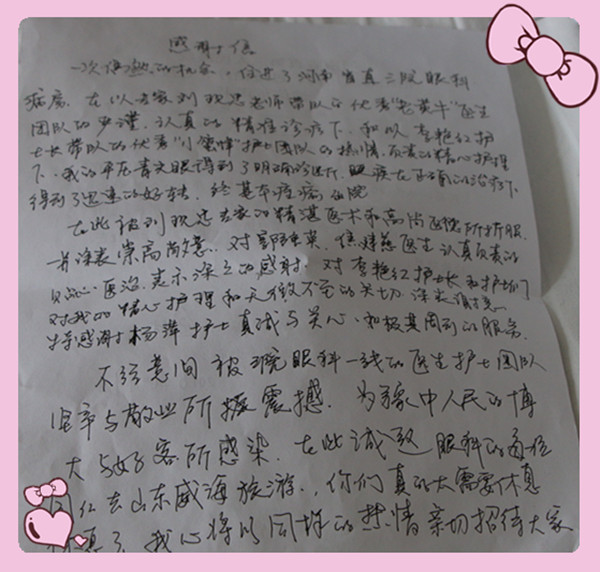 感谢信
一次偶然的机会，住进了河南省直三院眼科
病房。在以专家刘现忠老师带队的优秀"老黄牛"医生
团队的严谨、认真的精准诊疗下，和以李艳红护
士长带队的优秀"小蜜蜂"护士团队的热情、负责的精心护理
下，我的平左青光眼得到了明确诊断，眼疾在正确的治疗下
得到了迅速的好转，终基本痊愈出院
在此被刘现忠专家的精湛医术和高尚医德所折服，
并深表崇高敬意。对郭，焦医生认真负责的
医治，表示深深的感谢。对李艳红护士长和护士们
对我的精心护理和无微不至的关切，深表谢意。
特感谢杨萍护士真诚与关心、和极其周到的服务。
不经意间被贵院眼科一线的医生护士团队
坚辛与敬业所撼震撼。为豫中人民的博
大与好客所感染。在此诚邀眼科的各位
同仁去山东威海旅游，你们真的太需要休息
了，我心将以同样的热情亲切招待大家